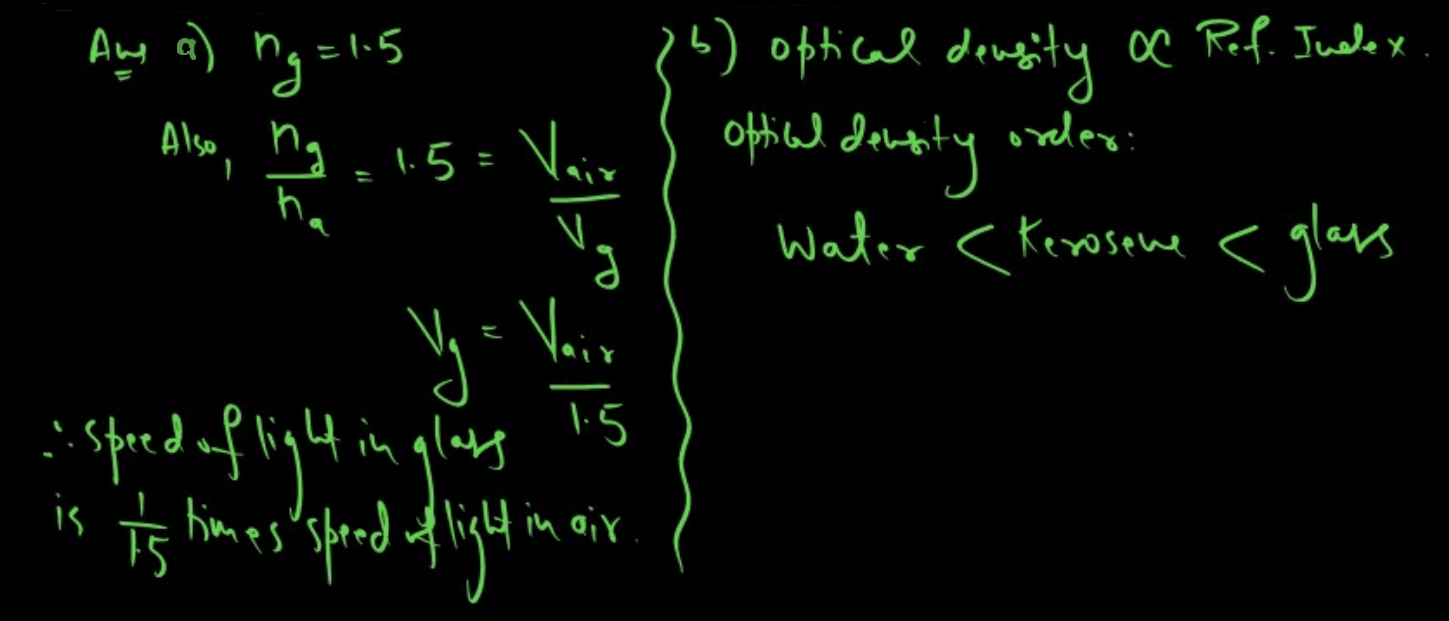 Ans a) ng = 1.5
Also, ng/na = 1.5 = Vair/Vg
Vg = Vair/1.5
∴ speed of light in glass
is 1/1.5 times speed of light in air.
b) optical density ∝ Ref. Index.
Optical density order:
Water < Kerosene < glass